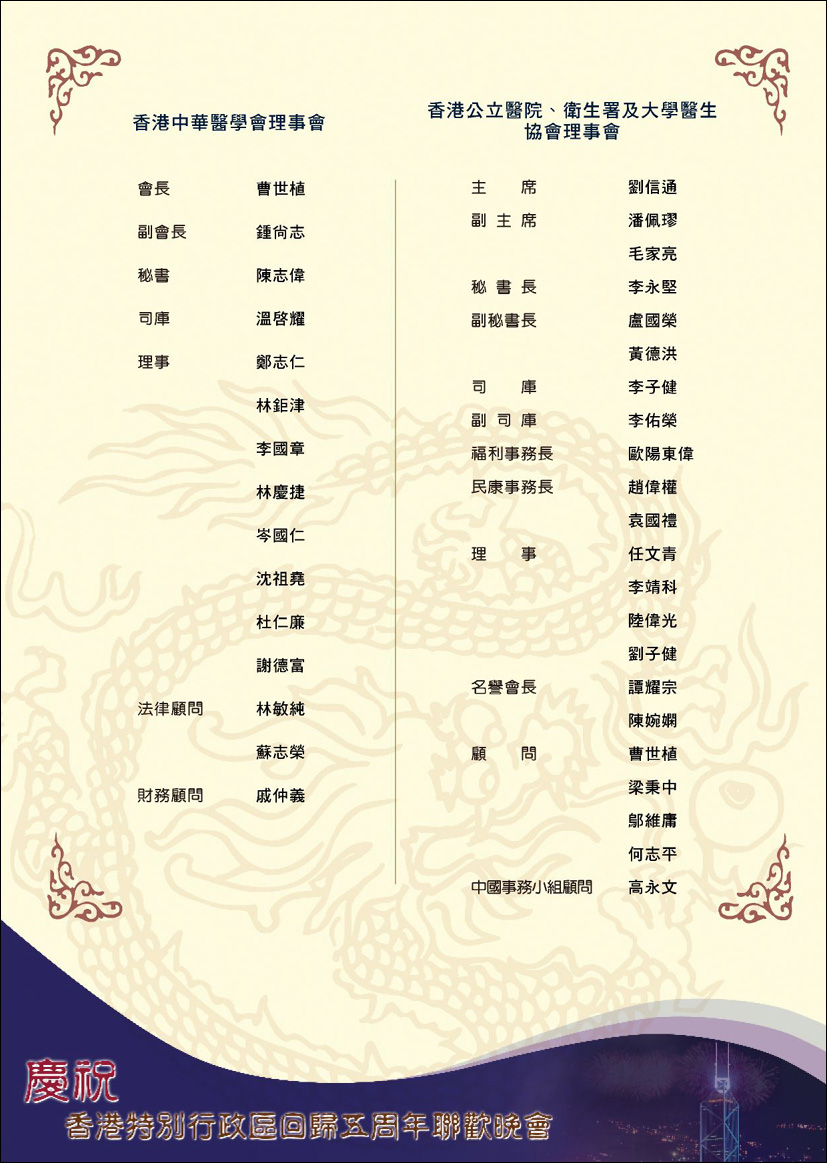 香港中華醫學會理事會
會長 曹世植
副會長 鍾尚志
秘書 陳志偉
司庫 溫啓耀
理事 鄭志仁
林鉅津
李國章
林慶捷
岑國仁
沈祖堯
杜仁廉
謝德富
法律顧問 林敏純
蘇志榮
財務顧問 戚仲義
香港公立醫院、衛生署及大學醫生
協會理事會
主席 劉信通
副主席 潘佩璆
毛家亮
秘書長 李永堅
副秘書長 盧國榮
黃德洪
司庫 李子健
副司庫 李佑榮
福利事務長 歐陽東偉
民康事務長 趙偉權
袁國禮
理事 任文青
李靖科
陸偉光
劉子健
名譽會長 譚耀宗
陳婉嫻
顧問 曹世植
梁秉中
鄔維庸
何志平
中國事務小組顧問 高永文
慶祝
香港特別行政區回歸五周年聯歡晚會